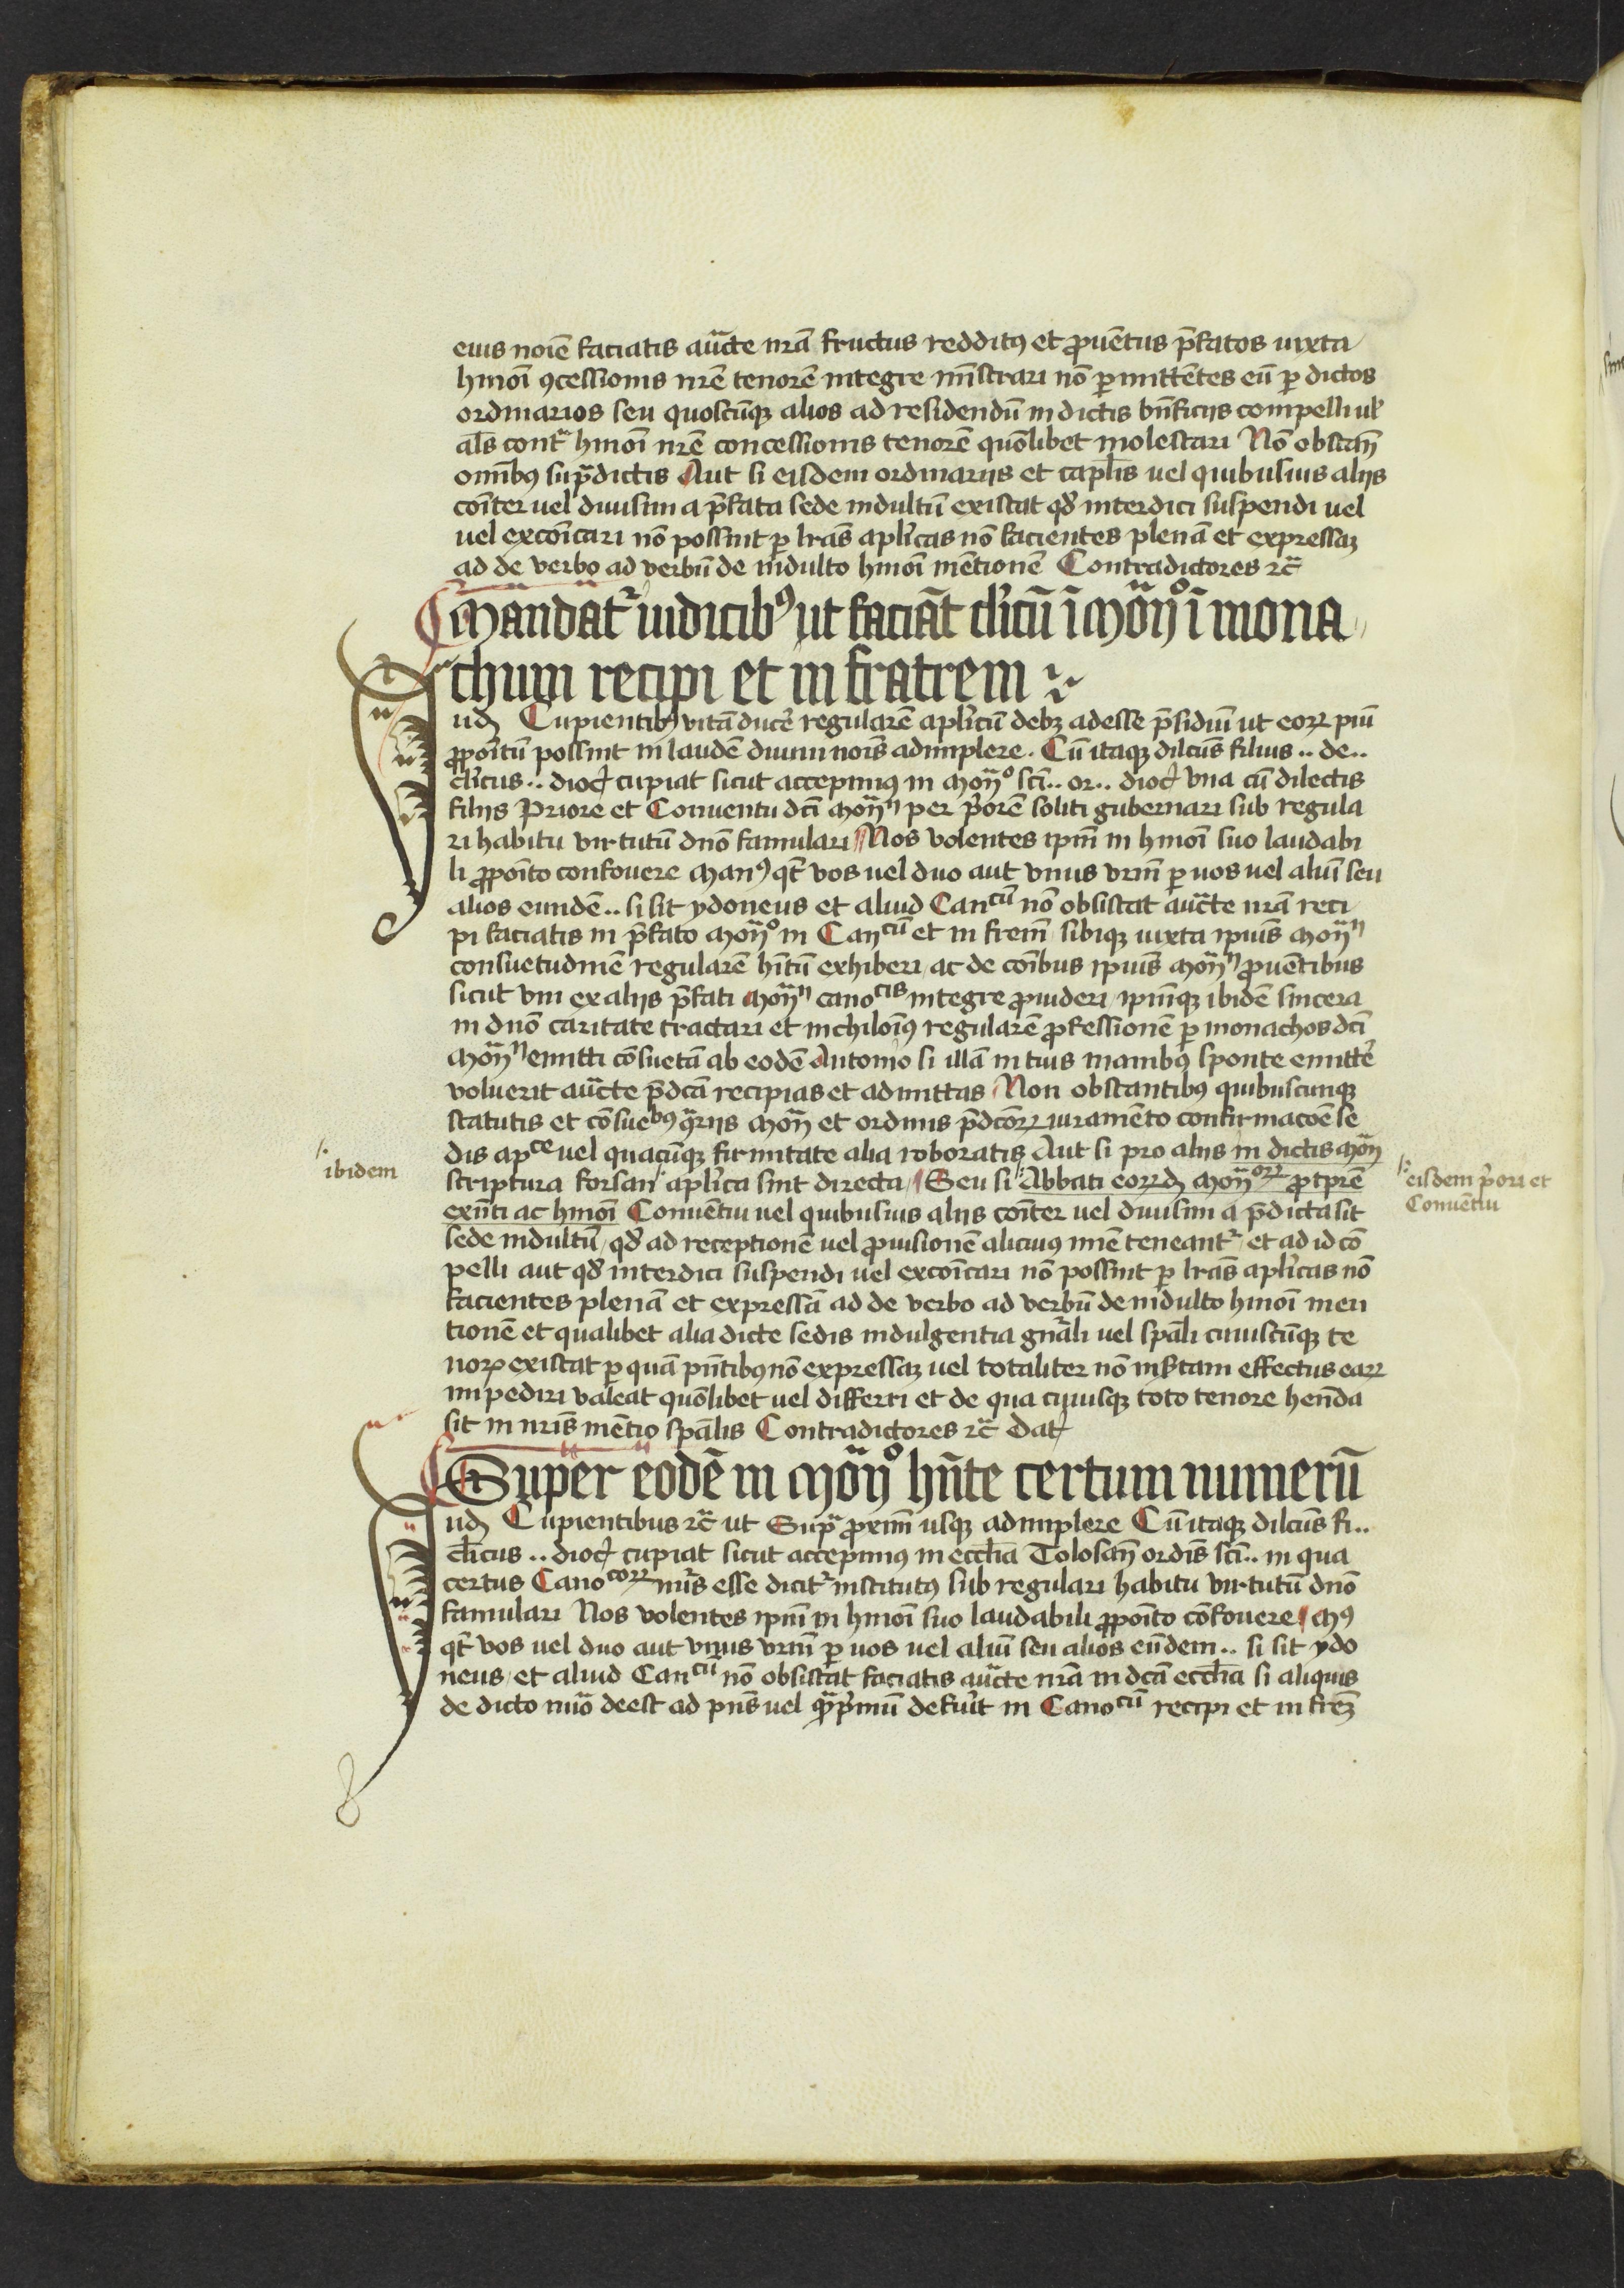 eius noīe faciatis auc̄te nr̄a fructus redditꝯ et ꝓuētus p̄fatos iuxta
hmōi ꝯcessionis nr̄e tenorē integre mīstrari nō ꝑmittētes eū ꝑ dictos
ordinarios seu quoscūqꝫ alios ad residendū in dictis bn̄ficijs compelli ul̓
al̄s contͣ hmōi nr̄e concessionis tenorē quōlibet molestari Nō obstan̄
om̄ibꝯ supͣdictis Aut si eisdem ordinarijs et capl̄is uel quibusuis alijs
cōiter uel diuisim a p̄fata sede indultū existat qd̓ interdici suspendi uel
uel excōicari nō possint ꝑ lr̄as apl̓icas nō facientes plenā et expressaꝫ
ad de verbo ad verbū de indulto hmōi mētionē Contradictores ⁊c̄
Mandat᷑ iudicibꝯ ut faciāt cl̓icū ī Mon̄ͦ ī mona
chum recipi et in fratrem
Iud̓ Cupientibꝯ vitā duce᷑ regularē apl̓icū debꝫ adesse p̄sidiū ut eoꝝ piū
ꝓpoītū possint in laudē diuini noīs adimplere. Cū itaqꝫ dilcūs filius .. de ..
cl̓icus .. dioc̓ cupiat sicut accepimꝯ in Mon̄ͦ sci .. or .. dioc̓ vna cū dilectis
filijs Priore et Conuentu dci Mon̄ͥͥ per p̓orē soliti gubernari sub regula
ri habitu virtutū dnō famulari Nos volentes ip̄m in hmōi suo laudabi
li ꝓpoīto confouere Manꝯ qt̄ vos uel duo aut vnus vrm̄ ꝑ uos uel aliū seu
alios eundē .. si sit ydoneus et aliud Canᶜᵘ̄ nō obsistat auc̄te nr̄a reci
pi faciatis in p̄fato Mon̄ͦ in Canᶜᵘ̄ et in frem̄ sibiqꝫ iuxta ipiūs Mon̄ͥͥ
consuetudinē regularē hītū exhiberi ac de cōibus ipiūs Mon̄ͥͥ ꝓuētibus
sicut vni ex alijs p̄fati Mon̄ͥͥ canoᶜⁱˢ integre ꝓuideri ipmq̄ꝫ ibidē sincera
in dnō caritate tractari et nichiloīꝯ regularē ꝓfessionē ꝑ monachos dci
Mon̄ͥͥ emitti cōsuetā ab eodē Antonio si illā in tuis manibꝯ sponte emitte᷑
voluerit auc̄te p̄dcā recipias et admittas Non obstantibꝯ quibuscunqꝫ
statutis et cōsueᵇꝯ ꝯͣrijs Mon̄ et ordinis p̄dcōꝝ iuramēto confirmacōe se
dis apᶜᵉ uel quacūqꝫ firmitate alia roboratis Aut si pro alijs in dictis Mon̄
ibidem
scriptura forsan apl̓ica sint directa Seu si Abbati eoꝝd̓ Mon̄ᵒꝝ ꝓtp̄re
eisdem p̓ori et
Conuētui
exn̄ti ac hmōi Conuētui uel quibusuis alijs cōiter uel diuisim a p̄dicta sit
sede indultū qd̓ ad receptionē uel ꝓuisionē alicuius mīe teneant᷑ et ad id cō
pelli aut qd̓ interdici suspendi uel excōicari nō possint ꝑ lr̄as apl̓icas nō
facientes plenā et expressā ad de verbo ad verbū de indulto hmōi men
tionē et qualibet alia dicte sedis indulgentia gnr̄ali uel spāli cuiuscūqꝫ te
noꝝ existat ꝑ quā pn̄tibꝯ nō expressaꝫ uel totaliter nō insertam effectus eaꝝ
impediri valeat quōlibet uel differri et de qua cuiusqꝫ toto tenore hen̄da
sit in nr̄is mētio spālis Contradictores ⁊c̄ Dat̓
Super eodē in Mon̄ͦ hn̄te certum numerū
Iud̓ Cupientibus ⁊c̄ ut Supͣ ꝓxim̄ usqꝫ adimplere Cū itaqꝫ dilcūs fi ..
cl̓icus .. dioc̓ cupiat sicut accepimꝯ in eccl̄ia Tolosan̄ ordīs sci .. in qua
certus Canoᶜᵒꝝ nūs esse dicit᷑ institutꝯ sub regulari habitu virtutū dnō
famulari Nos volentes ip̄m in hmōi suo laudabili ꝓpoīto cōfouere Mꝯ
qt̄ vos uel duo aut vnus vrm̄ ꝑ uos uel aliū seu alios eūdem .. si sit ydo
neus et aliud Canᶜᵘ̄ nō obsistat faciatis auc̄te nr̄a in dcā eccl̄ia si aliquis
de dicto nūo deest ad pn̄s uel qͣꝑp̓mū defu̓it in Canoᶜᵘ̄ recipi et in freꝫ